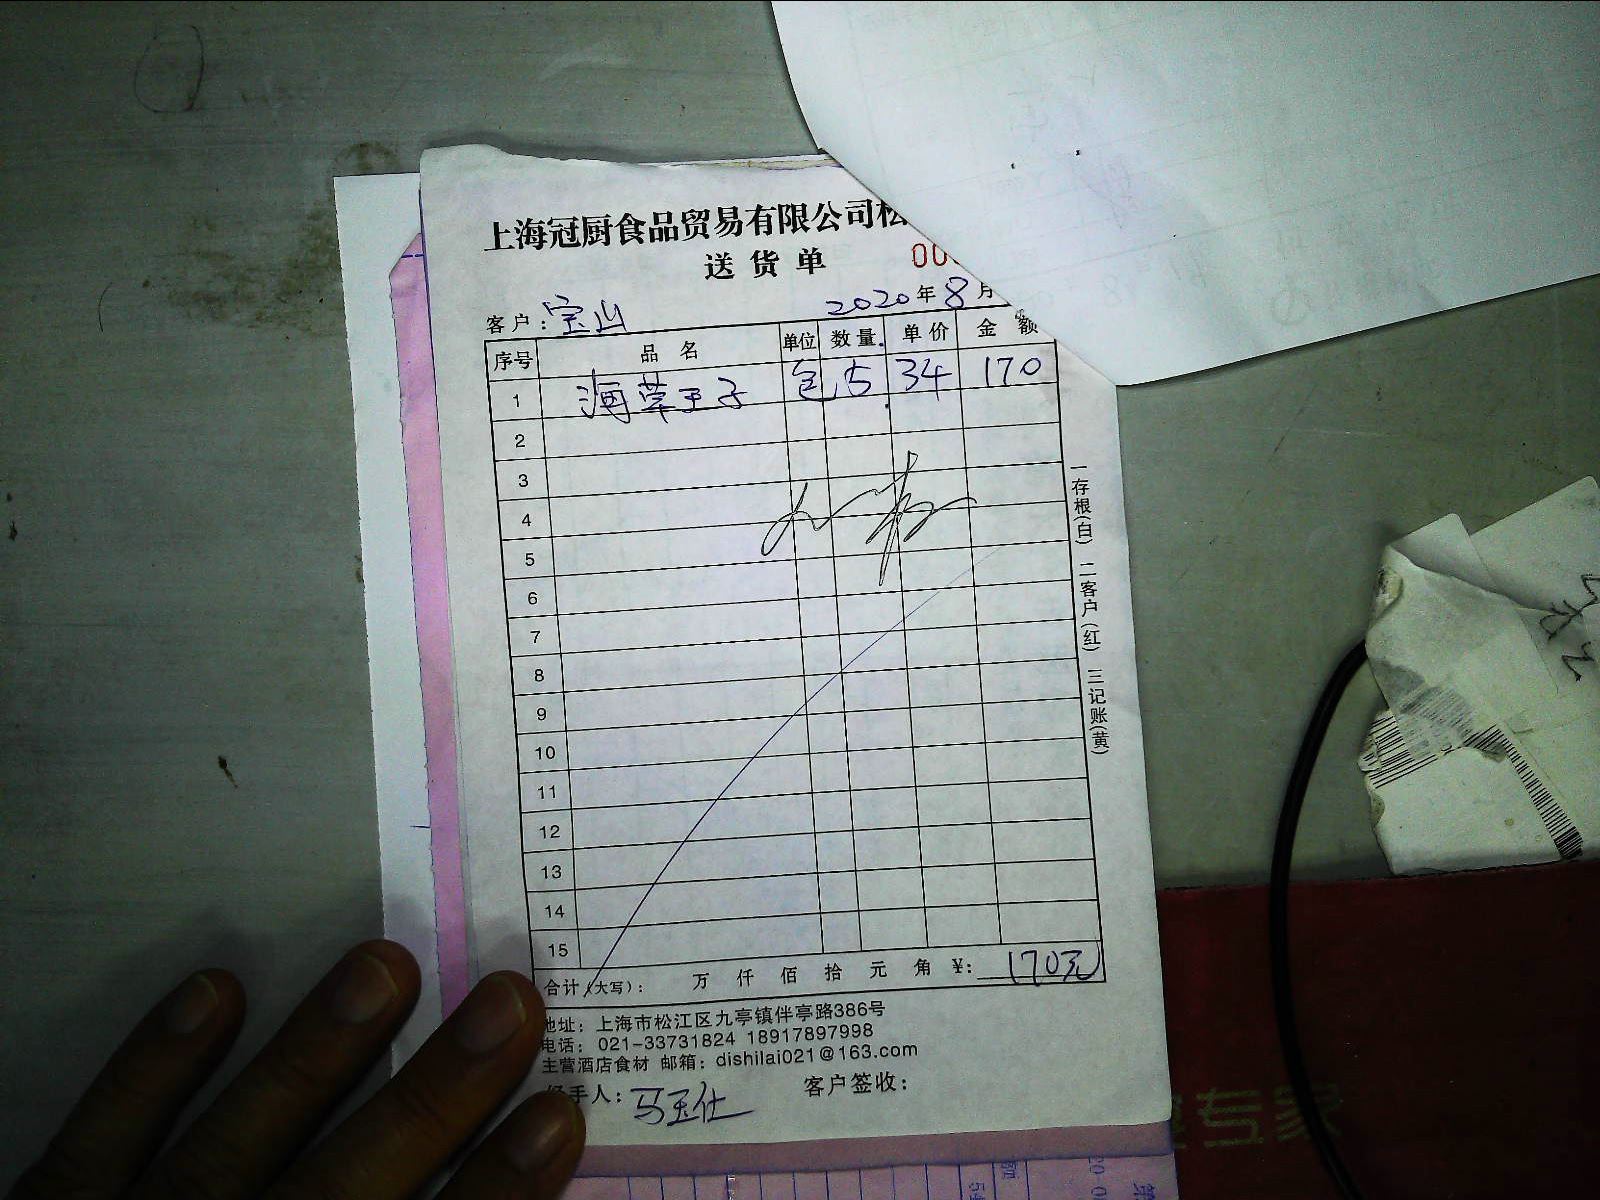 上海冠厨食品贸易有限公司松
送货单
00
客户：宝山 2020年8月
序号 品名 单位 数量 单价 金额
1 海草王子 包 5 34 170
2
3
4
5
6
7
8
9
10
11
12
13
14
15
合计(大写)： 万 仟 佰 拾 元 角 ¥：170元
地址：上海市松江区九亭镇伴亭路386号
电话：021-33731824 18917897998
主营酒店食材 邮箱：dishilai021@163.com
经手人：马玉仕 客户签收：
一存根(白) 二客户(红) 三记账(黄)
专家